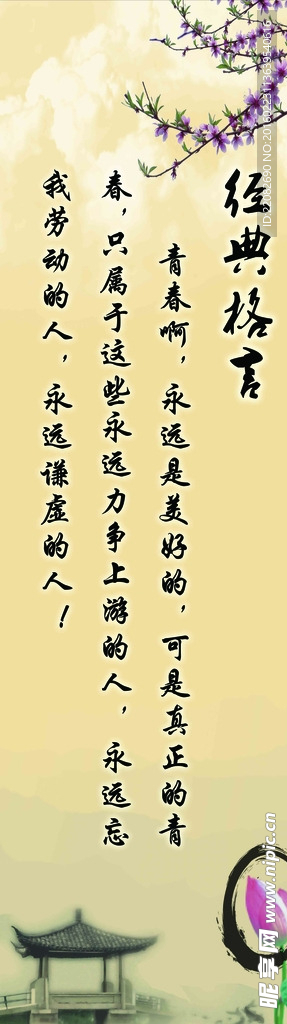 经典格言
青春啊，永远是美好的，可是真正的青
春，只属于这些永远力争上游的人，永远忘
我劳动的人，永远谦虚的人！
昵享网 www.nipic.cn